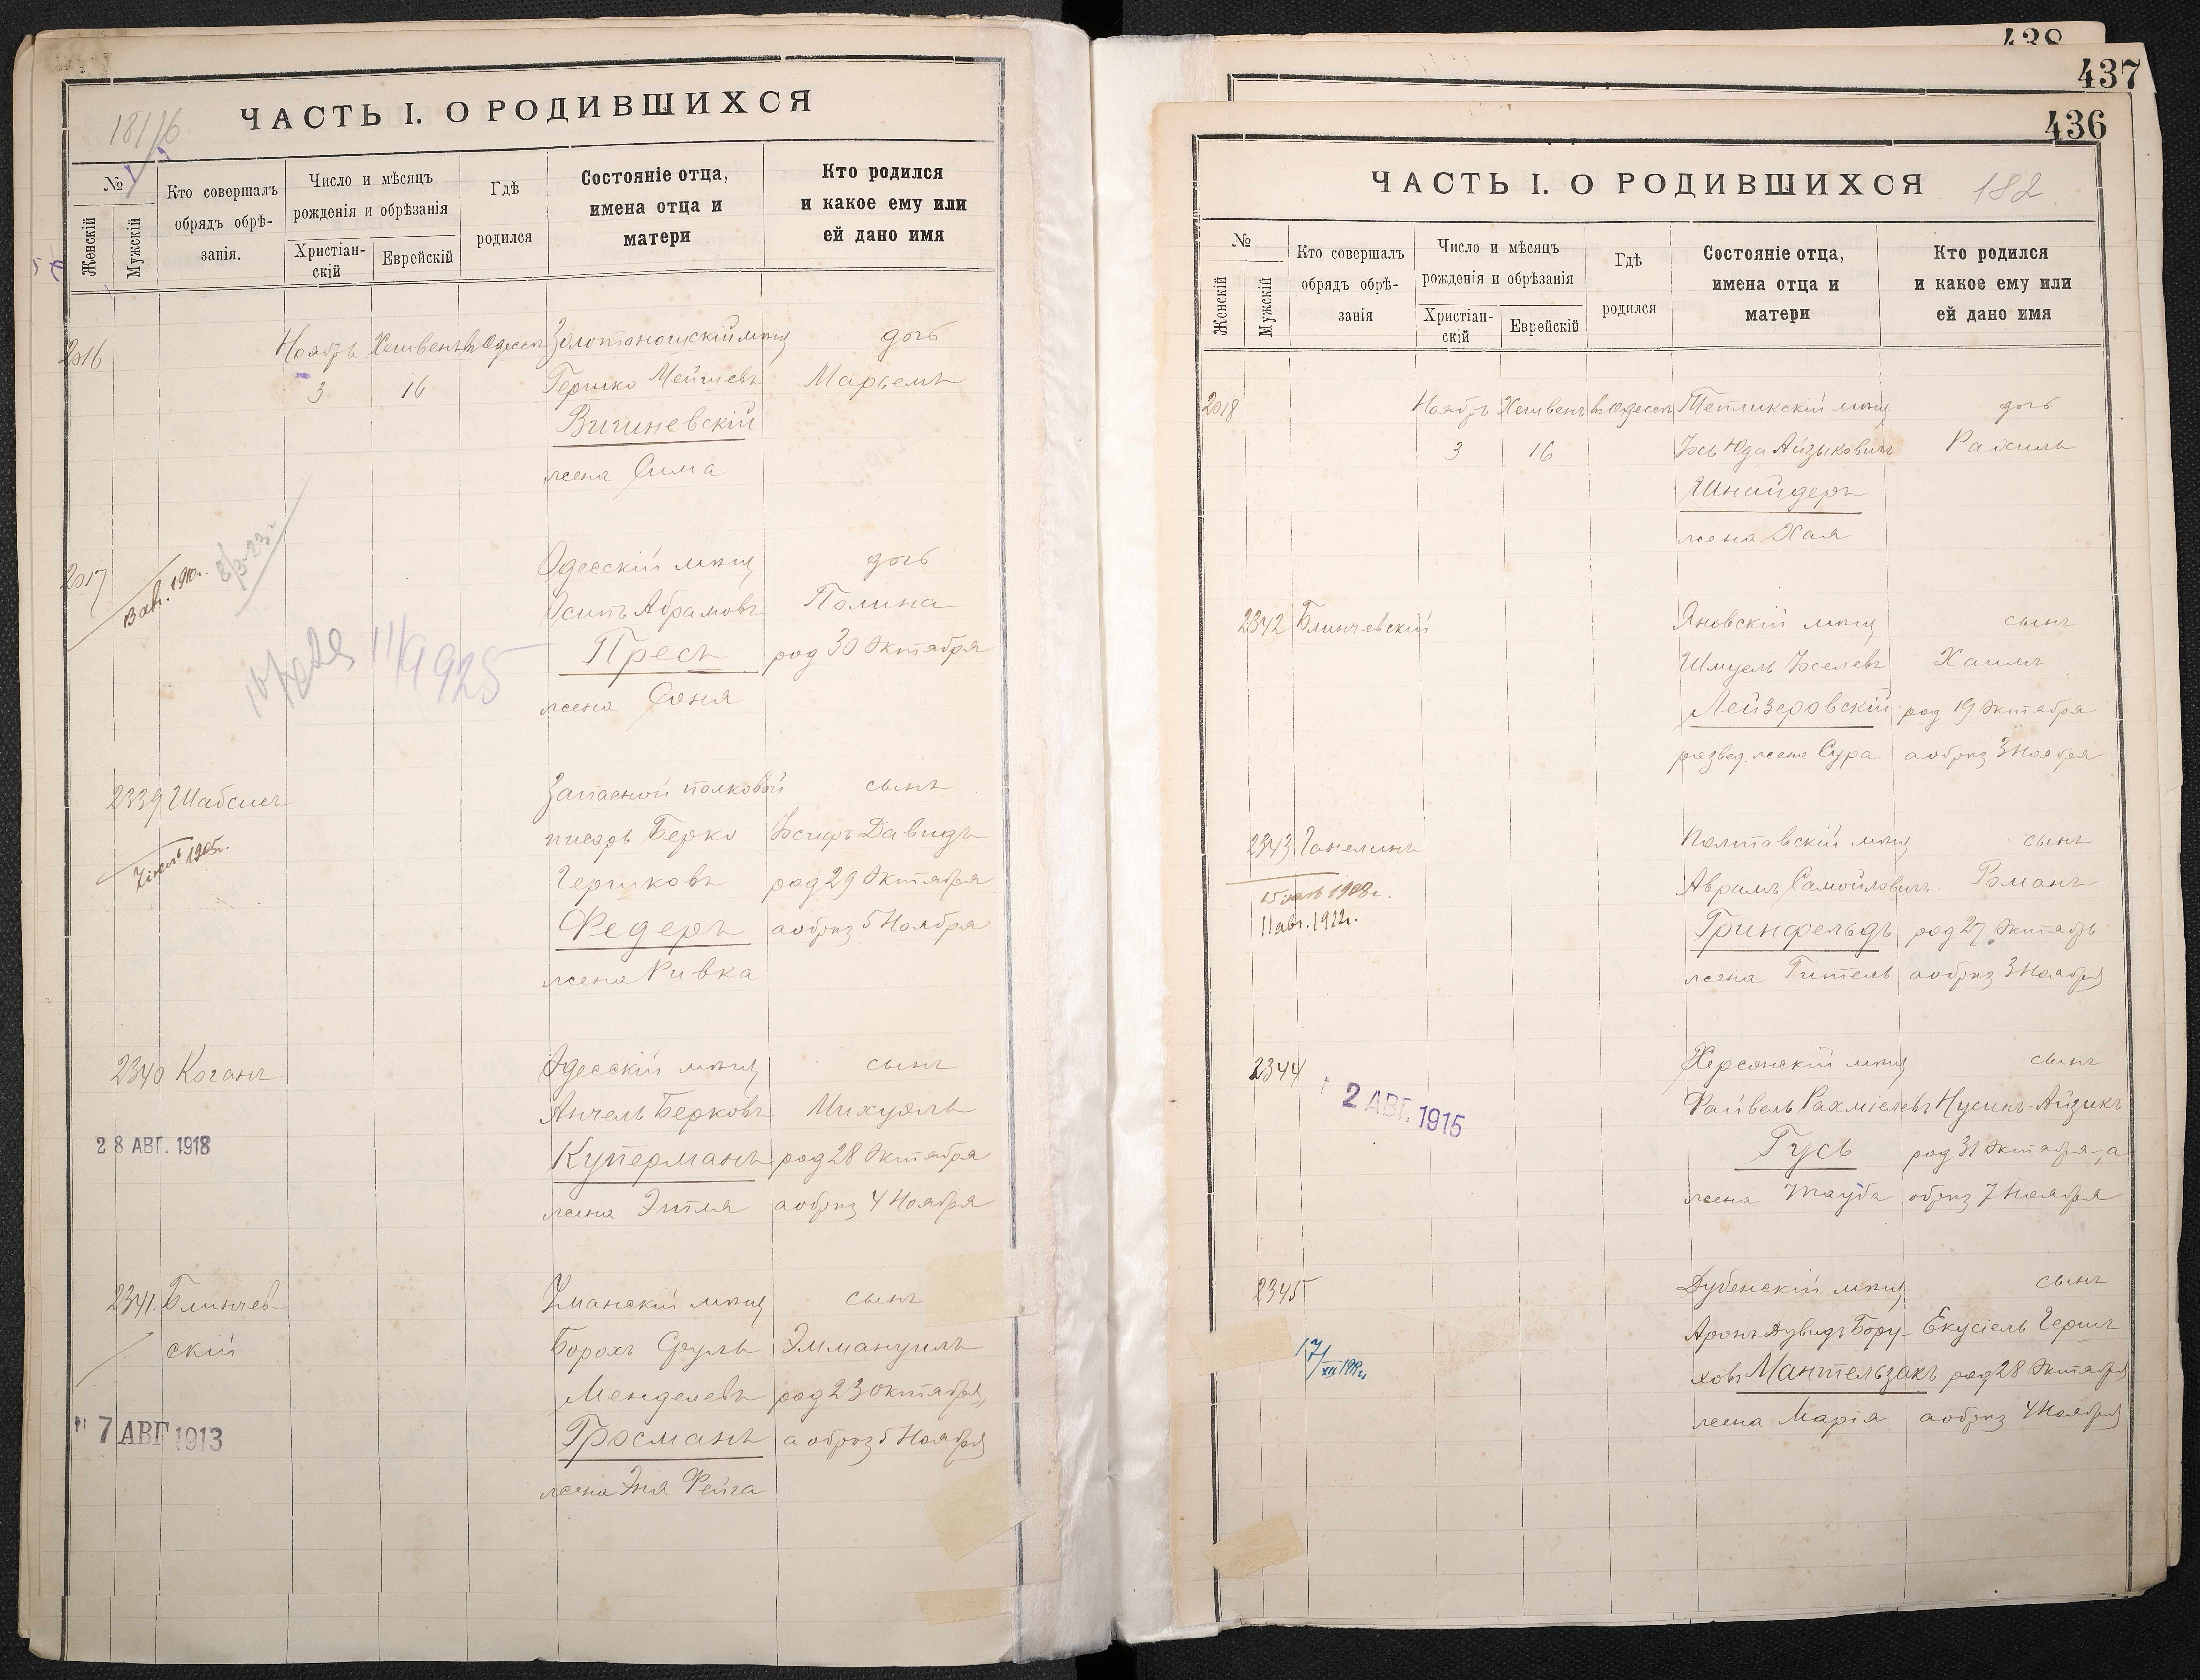 ЧАСТЬ I. О РОДИВШИХСЯ
№
Женскій
Мужскій
Кто совершалъ
обрядъ обрѣ-
занія.
Число и мѣсяцъ
рожденія и обрѣзанія
Христіан-
скій
Еврейскій
Гдѣ
родился
Состояніе отца,
имена отца и
матери
Кто родился
и какое ему или
ей дано имя
2016 Ноябрь Хешвенъ въ Одессѣ Золотоношскій мѣщ дочь
3 16 Гершко Мейшевъ Марьемъ
Вишневскій
жена Сима
2017 Одесскій мѣщ дочь
Осипъ Абрамовъ Полина
Пресъ род 30 Октября
жена Соня
2339 Шабсисъ Запасной полковой сынъ
писарь Берко Іосифъ Давидъ
Гершковъ род 29 Октября
Федеръ а обрѣз 5 Ноября
жена Ривка
2340 Коганъ Одесскій мѣщ сынъ
Анчель Берковъ Михуэль
28 АВГ. 1918
Куперманъ род 28 Октября
жена Этля а обрѣз 4 Ноября
2341. Блинчев- Уманскій мѣщ сынъ
скій Борохъ Сруль Эммануилъ
Менделевъ род 23 Октября,
7 АВГ 1913
Гросманъ а обрѣз 5 Ноября
жена Эня Фейга
438
437
436
ЧАСТЬ I. О РОДИВШИХСЯ 182
№
Женскій
Мужскій
Кто совершалъ
обрядъ обрѣ-
занія
Число и мѣсяцъ
рожденія и обрѣзанія
Христіан-
скій
Еврейскій
Гдѣ
родился
Состояніе отца,
имена отца и
матери
Кто родился
и какое ему или
ей дано имя
2018 Ноябрь Хешвенъ въ Одессѣ Тепликскій мѣщ дочь
3 16 Іось Юда Айзыковичъ Рахиль
Шнайдеръ
жена Хая
2342 Блинчевскій Яновскій мѣщ сынъ
Шмуель Іоселевъ Хаимъ
Лейзеровскій род 19 Октября
развед. жена Сура а обрѣз 3 Ноября
2343 Ганелинъ Полтавскій мѣщ сынъ
Аврамъ Самойловичъ Романъ
11 авг. 1922г.
Гринфельдъ род 27 Октября
жена Гитель а обрѣз 3 Ноября
2344 Херсонскій мѣщ сынъ
2 АВГ. 1915
Файвель Рахміелевъ Нусинъ-Айзикъ
Гусь род 31 Октября, а
жена Тауба обрѣз 7 Ноября
2345 Дубенскій мѣщ сынъ
Аронъ Дувидъ Бору- Екусіель Гершъ
ховъ Мантельзакъ род 28 Октября
жена Марія а обрѣз 4 Ноября